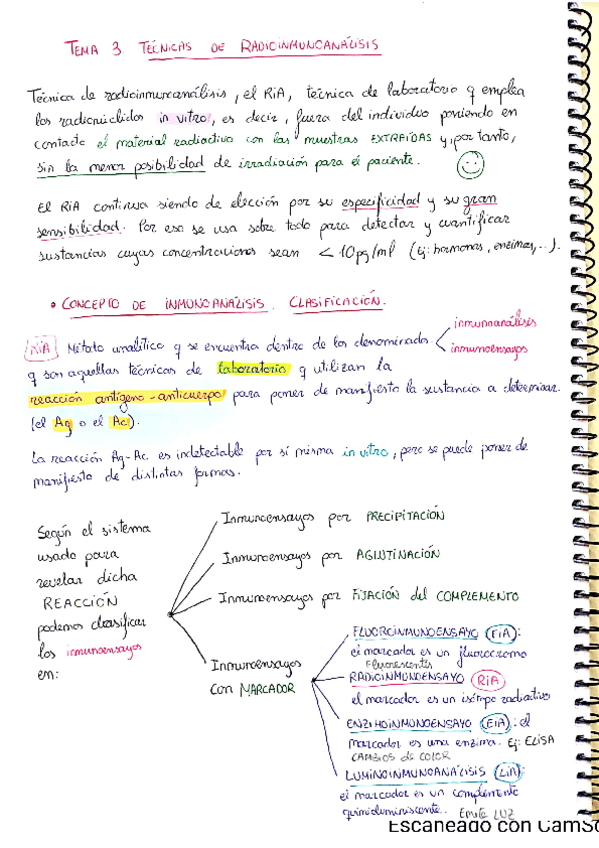 TEMA 3 TÉCNICAS DE RADIOINMUNOANÁLISIS
Técnica de radioinmunoanálisis, el RiA, técnica de laboratorio q emplea
los radionúclidos in vitro, es decir, fuera del individuo poniendo en
contacto el material radiactivo con las muestras EXTRAÍDAS y, por tanto,
sin la menor posibilidad de irradiación para el paciente.
El RiA continua siendo de elección por su especificidad y su gran
sensibilidad. Por eso se usa sobre todo para detectar y cuantificar
sustancias cuyas concentraciones sean < 10pg/ml (Ej: hormonas, enzimas,...).
• CONCEPTO DE INMUNOANÁLISIS. CLASIFICACIÓN.
RiA Método analítico q se encuentra dentro de los denominados < inmunoanálisis
inmunoensayos
q son aquellas técnicas de laboratorio q utilizan la
reacción antígeno-anticuerpo para poner de manifiesto la sustancia a determinar
(el Ag o el Ac).
La reacción Ag-Ac es indetectable por sí misma in vitro, pero se puede poner de
manifiesto de distintas formas.
Según el sistema
usado para
revelar dicha
REACCIÓN
podemos clasificar
los inmunoensayos
en:
Inmunoensayos por PRECIPITACIÓN
Inmunoensayos por AGLUTINACIÓN
Inmunoensayos por FIJACIÓN del COMPLEMENTO
Inmunoensayos
con MARCADOR
FLUOROINMUNOENSAYO (FiA):
el marcador es un fluorocromo
Fluorescentes
RADIOINMUNOENSAYO RiA
el marcador es un isótopo radiactivo
ENZIMOINMUNOENSAYO (EiA): el
marcador es una enzima. Ej: ELISA
CAMBIOS de COLOR
LUMINOINMUNOANÁLISIS (LiA):
el marcador es un complemento
quimioluminiscente. Emite LUZ
Escaneado con CamSc